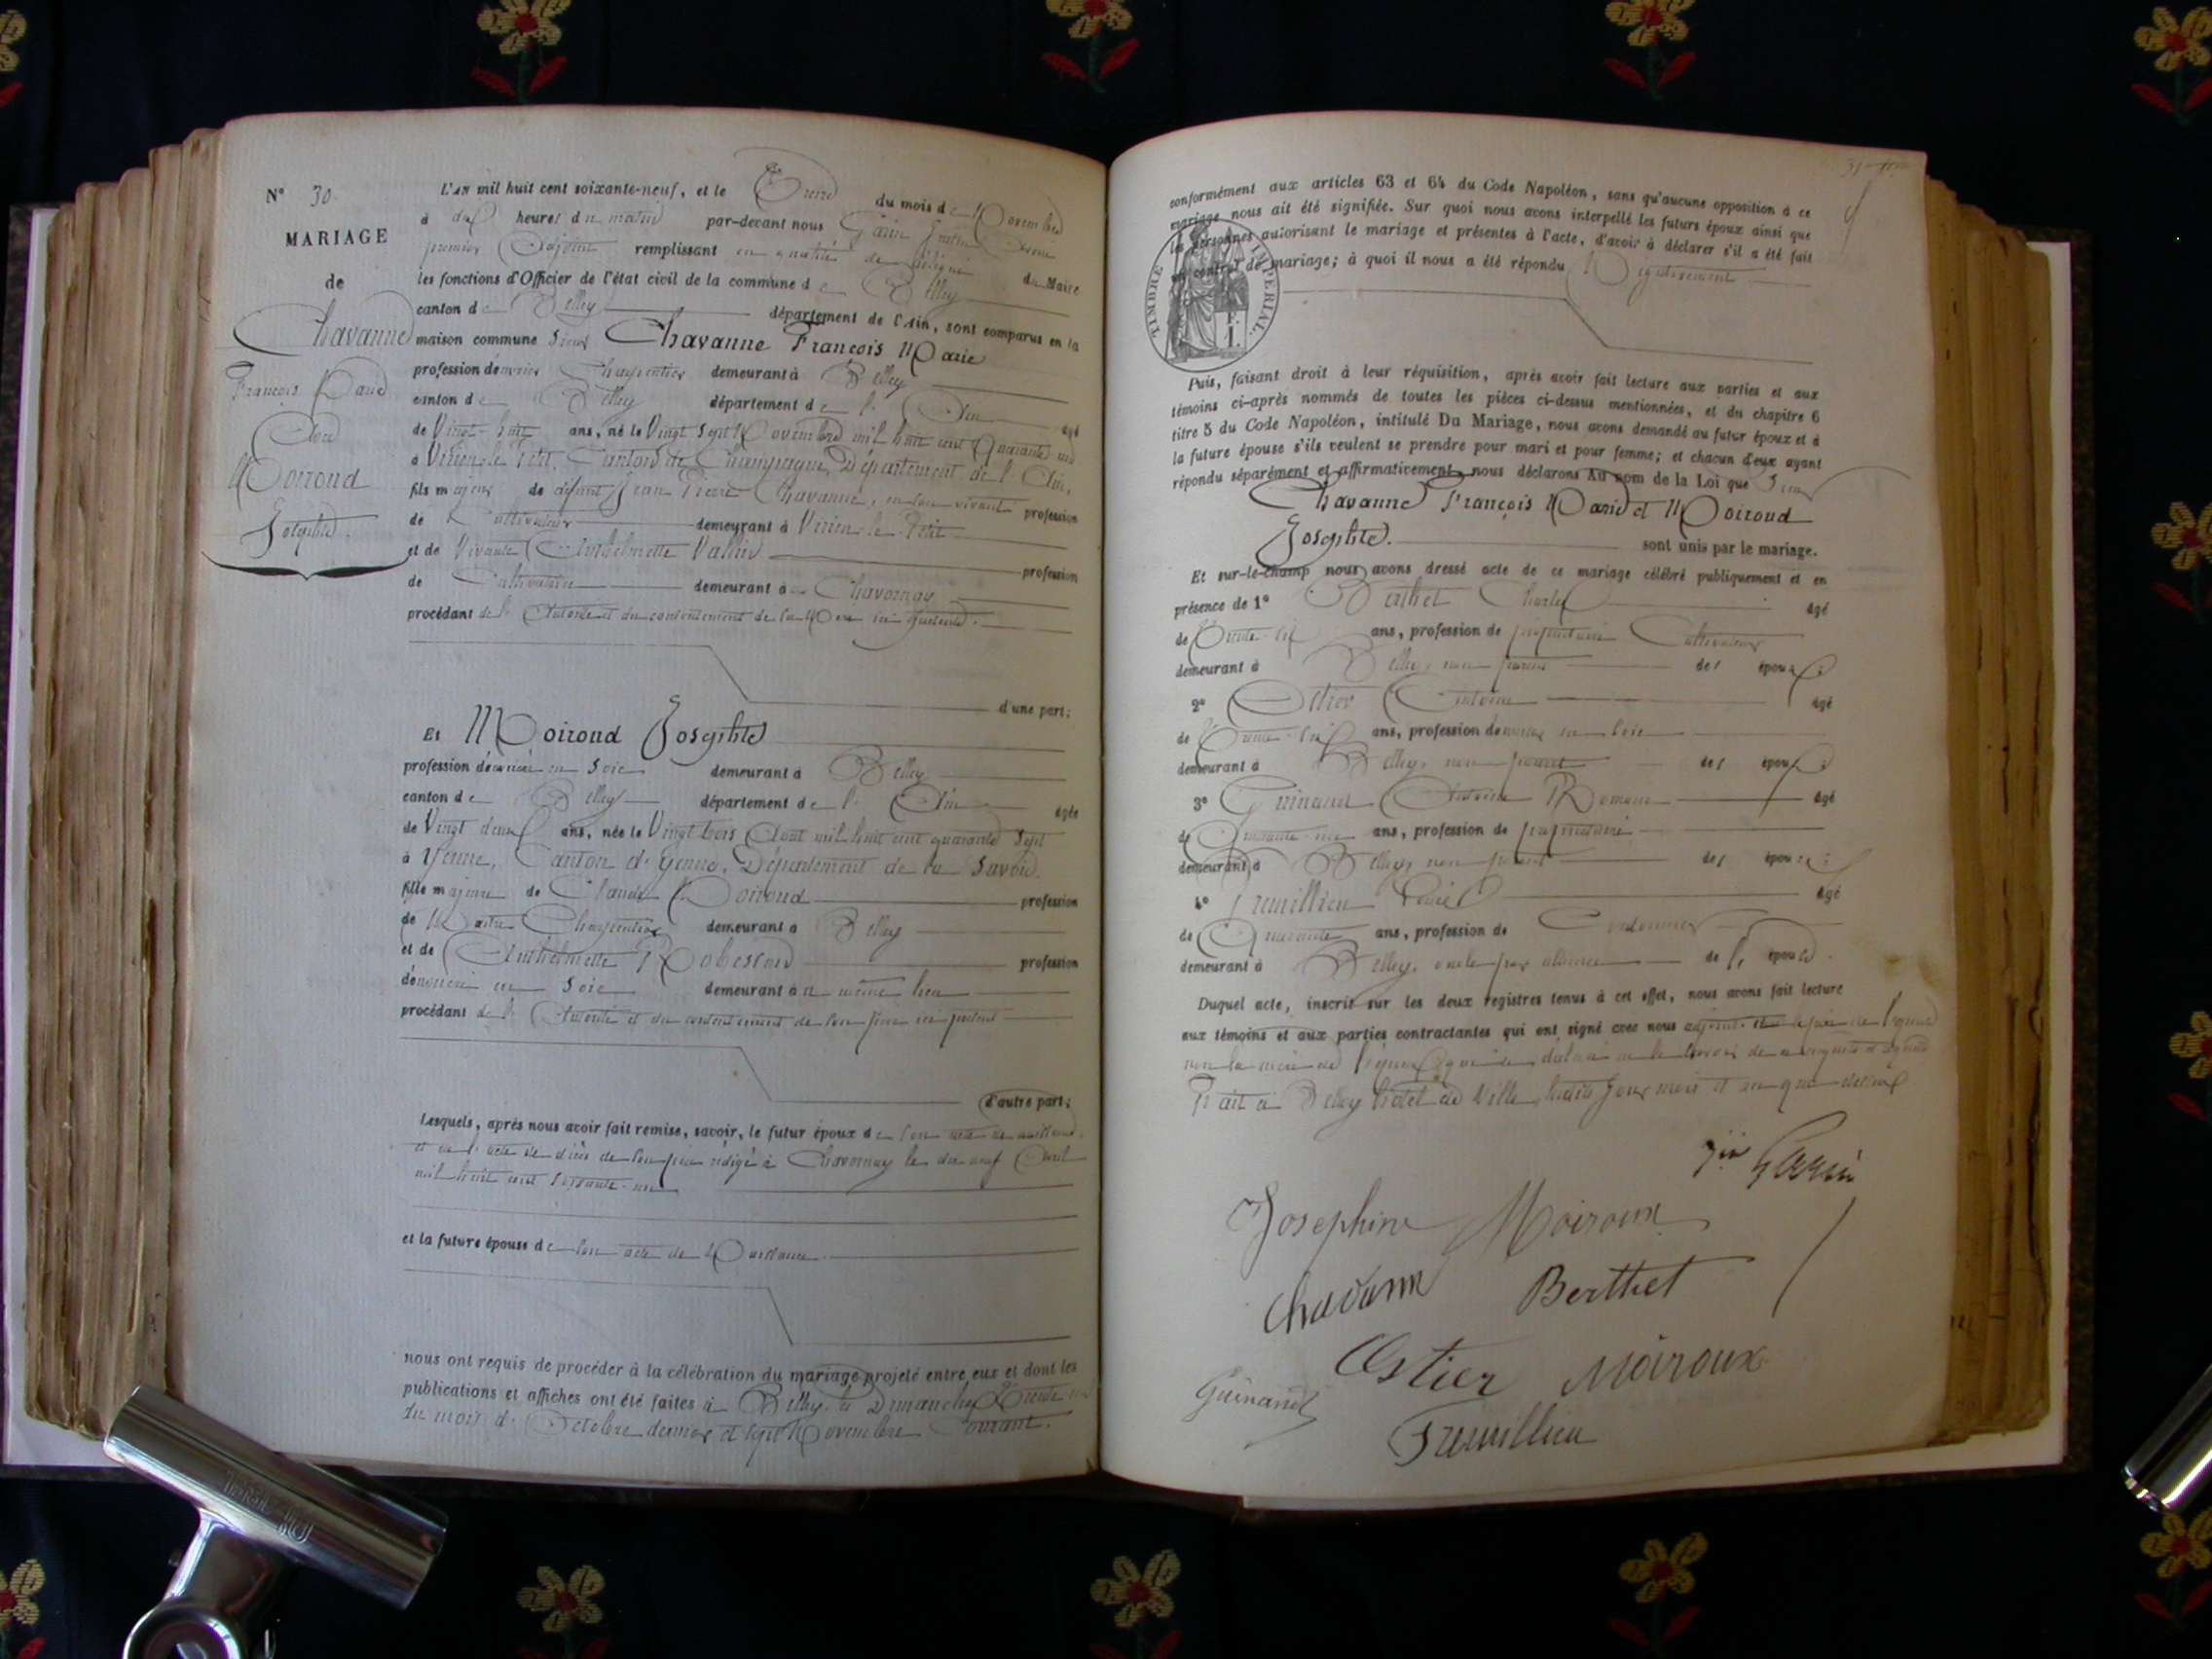 N° 30.
MARIAGE
de
Chavanne
François Marie
Avec
Moiroud
Josephte.
L'an mil huit cent soixante-neuf, et le Treize du mois de Novembre
à dix heures du matin par-devant nous
premier Adjoint remplissant en qualité de délégué du Maire
les fonctions d'Officier de l'état civil de la commune de Belley
canton de Belley département de l'Ain, sont comparus en la
maison commune Sieur Chavanne François Marie
profession d'ouvrier Charpentier demeurant à Belley
canton de Belley département de l'Ain âgé
de Vingt-huit ans, né le Vingt Sept Novembre mil huit cent Quarante un
à Virieu-le-Petit, Canton de Champagne, Département de l'Ain,
fils majeur de défunt Jean Pierre Chavanne, en son vivant profession
de Cultivateur demeurant à Virieu-le-Petit
et de Vivante Anthelmette Vallin profession
de Cultivatrice demeurant à Chavornay
procédant de l'Autorité et du consentement de sa Mère ici présente.
d'une part;
Et Moiroud Josephte
profession d'ouvrière en Soie demeurant à Belley
canton de Belley département de l'Ain âgée
de Vingt deux ans, née le Vingt trois Août mil huit cent quarante Sept
à Yenne, Canton d'Yenne, Département de la Savoie.
fille majeure de Claude Moiroud profession
de Maître Charpentier demeurant à Belley
et de Anthelmette profession
d'ouvrière en Soie demeurant au même lieu
procédant de l'Autorité et du consentement de son père ici présent
d'autre part;
Lesquels, après nous avoir fait remise, savoir, le futur époux de son acte de naissance,
et de l'acte de décès de son père rédigé à Chavornay le dix neuf Avril
mil huit cent soixante-un
et la future épouse de son acte de Naissance.
nous ont requis de procéder à la célébration du mariage projeté entre eux et dont les
publications et affiches ont été faites à Belley le Dimanche Trente un
du mois d'Octobre dernier et sept Novembre Courant.
conformément aux articles 63 et 64 du Code Napoléon, sans qu'aucune opposition à ce
mariage nous ait été signifiée. Sur quoi nous avons interpellé les futurs époux ainsi que
les personnes autorisant le mariage et présentes à l'acte, d'avoir à déclarer s'il a été fait
un contrat de mariage; à quoi il nous a été répondu Négativement
TIMBRE IMPERIAL.
Puis, faisant droit à leur réquisition, après avoir fait lecture aux parties et aux
témoins ci-après nommés de toutes les pièces ci-dessus mentionnées, et du chapitre 6
titre 5 du Code Napoléon, intitulé Du Mariage, nous avons demandé au futur époux et à
la future épouse s'ils veulent se prendre pour mari et pour femme; et chacun d'eux ayant
répondu séparément et affirmativement, nous déclarons Au nom de la Loi que Sieur
Chavanne François Marie et Moiroud
Josephte. sont unis par le mariage.
Et sur-le-champ nous avons dressé acte de ce mariage célébré publiquement et en
présence de 1° Berthet Charles âgé
de Trente-six ans, profession de propriétaire Cultivateur
demeurant à Belley, non parent des époux;
2° Ostier Antoine âgé
de ans, profession d'ouvrier en Soie
demeurant à Belley, non parent des époux;
3° Guinand Antoine Romain âgé
de Quarante-un ans, profession de propriétaire
demeurant à Belley, non parent des époux;
4° Louis âgé
de Quarante ans, profession de Cordonnier
demeurant à Belley, oncle par alliance de l'épouse.
Duquel acte, inscrit sur les deux registres tenus à cet effet, nous avons fait lecture
aux témoins et aux parties contractantes qui ont signé avec nous
non la mère de l'époux qui a déclaré ne le savoir de ce requise
Fait à Belley hôtel de Ville, lesdits jour mois et an que dessus
Josephine Moiroux
Chavann Berthet
Ostier Moiroux
Guinand